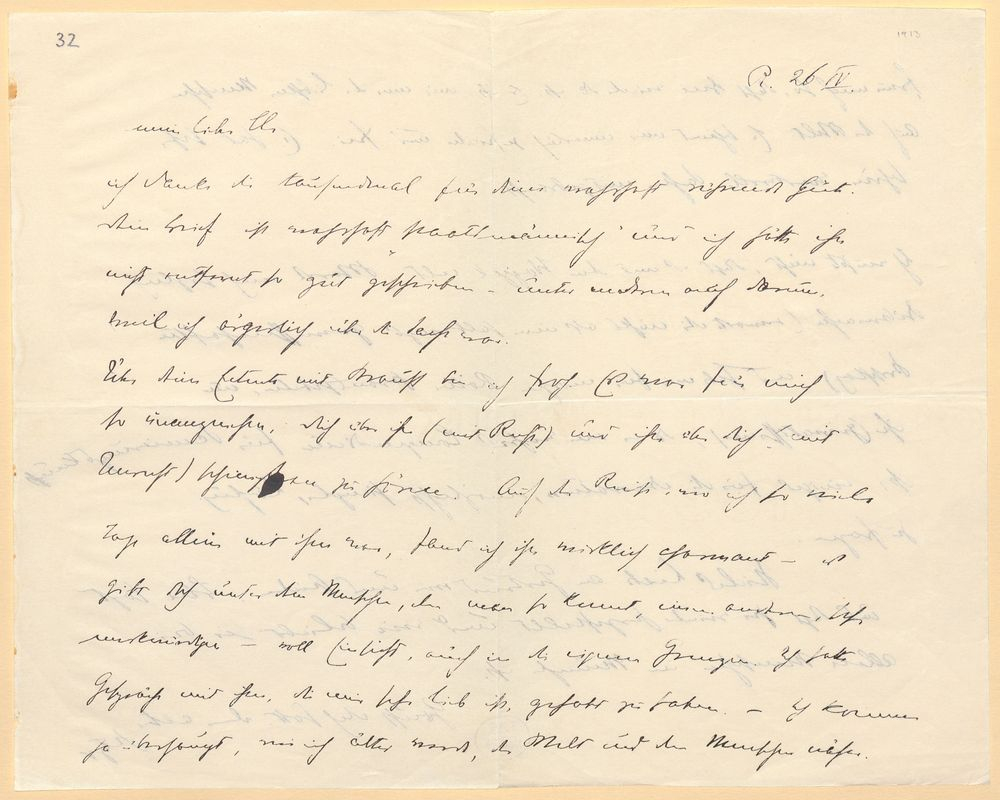 32
1913
R. 26 IV.
mein lieber
ich danke dir tausendmal für deine wahrhaft rührende Güte.
dein Brief ist wahrhaft staatsmännisch und ich hätte ihn
nicht entfernt so gut geschrieben – unter anderem auch darum,
weil ich ärgerlich über die Sache war.
Über deine Entente mit Strauss bin ich froh. Es war für mich
so unangenehm, dich über ihn (mit Recht) und ihn über dich (mit
Unrecht) schimpfen zu hören. Auf der Reise, wo ich so viele
Tage allein mit ihm war, fand ich ihn wirklich charmant – es
gibt doch unter den Menschen, den man so kennt, einen anderen, sehr
merkwürdigen – voll Einsicht, auch in die eigenen Grenzen. Ich hatte
Gespräche mit ihm, die mir sehr lieb ist, gehabt zu haben. – Ich komme
ja überhaupt, wie ich älter werde, der Welt und den Menschen näher.